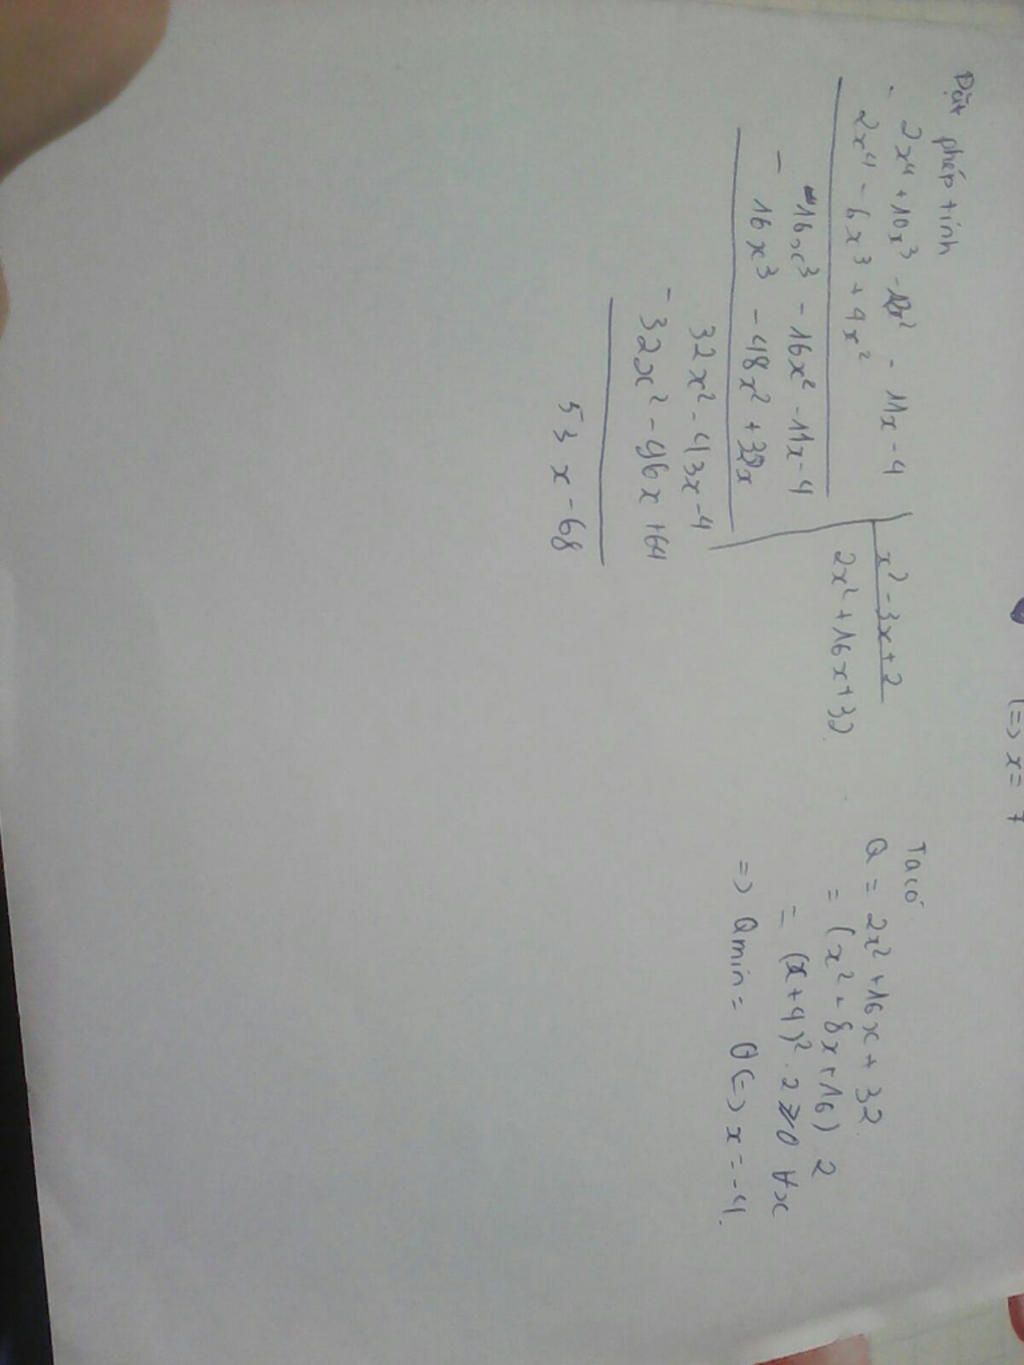 (=) x = 7
Đặt phép tính
- 2x⁴ + 10x³ - 12x² - 11x - 4 | x² - 3x + 2
2x⁴ - 6x³ + 4x² | 2x² + 16x + 32
- 16x³ - 16x² - 11x - 4
16x³ - 48x² + 32x
- 32x² - 43x - 4
32x² - 96x + 64
53x - 68
Ta có
Q = 2x² + 16x + 32
= (x² + 8x + 16) 2
= (x + 4)² . 2 ≥ 0 ∀x
=> Qmin = 0 (=) x = -4.